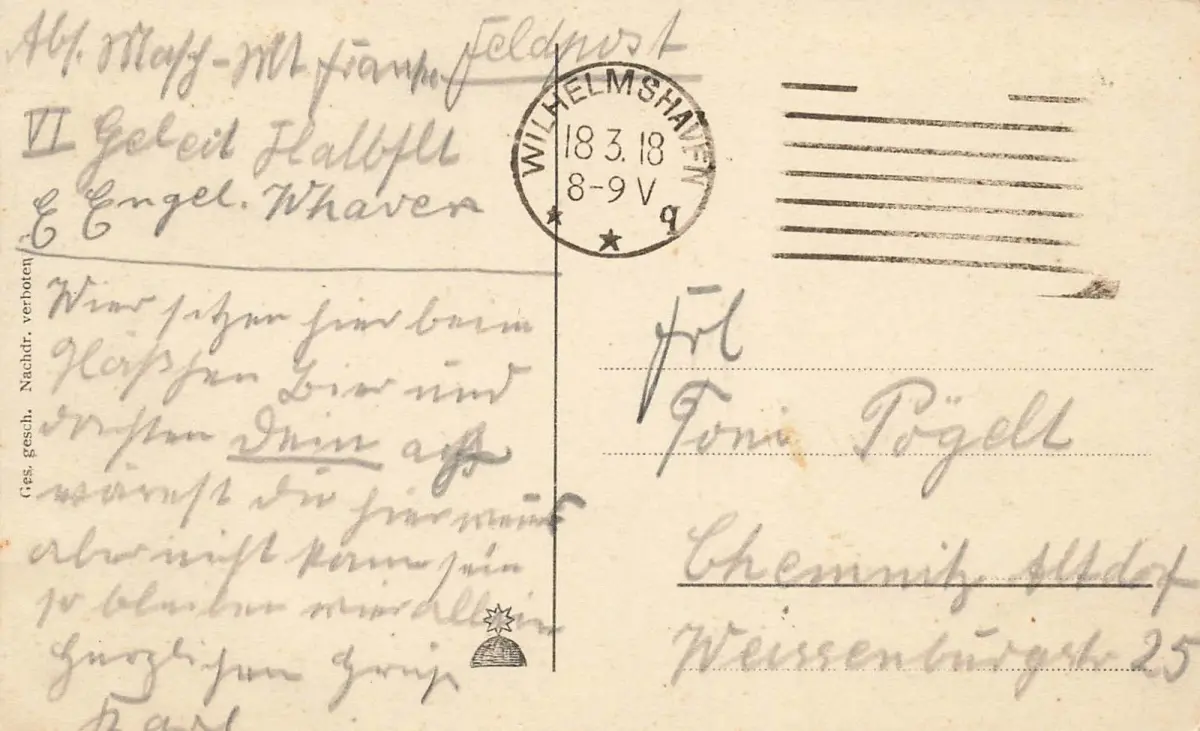 Feldpost
Abs. Masch-Mt. Franke
VI Geleit Halbflt
E Engel. Whaven
WILHELMSHAVEN
18 3. 18
8-9 V
q
Wier sitzen hier beim
Gläßchen Bier und
dachten Dein ach
wärest du hier
aber nicht kann sein
so bleiben wier allein
Herzlichen Gruß
Karl
Frl
Toni Pögelt
Chemnitz Altdorf
Weissenburgstr 25
Ges. gesch. Nachdr. verboten